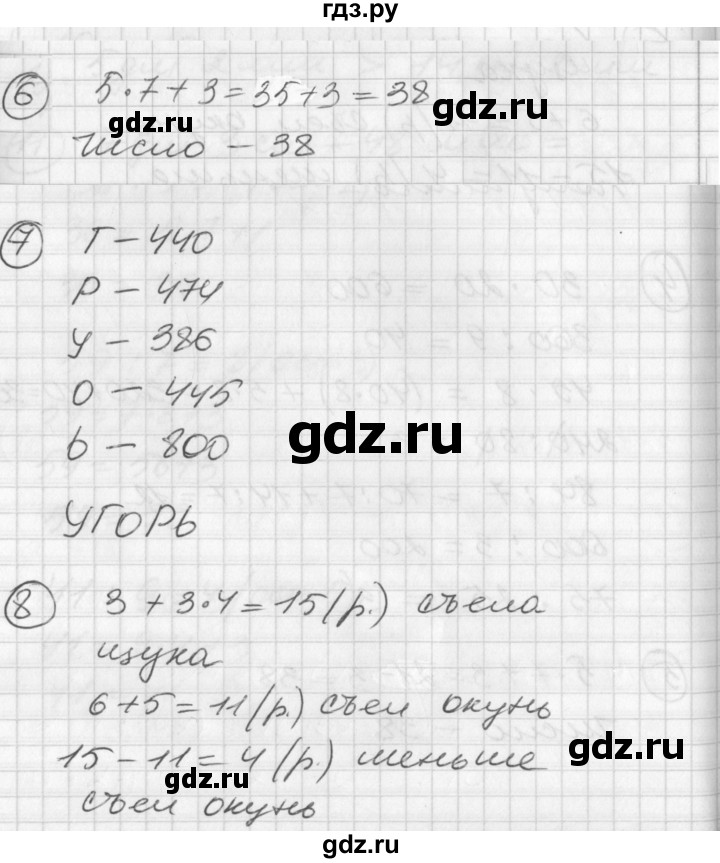 гдз.ру
6 5·7+3=35+3=38
gdz.ru gdz.ru
число – 38
7 Г – 440
Р – 474
У – 386
О – 445
gdz.ru
Ь – 800
УГОРЬ
8 3+3·4=15(р.) съела
щука
6+5=11(р.) съел окунь
15–11=4(р.) меньше
gdz.ru gdz.ru
съел окунь
gdz.ru